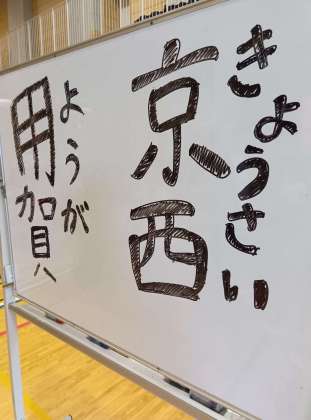 きょうさい
京西
ようが
用賀